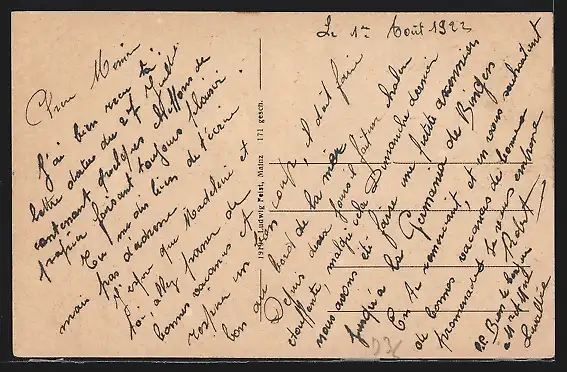 Le 1er Août 1923
Cher Mimi
J'ai bien reçu ta
lettre datée du 27 Juillet
contenant quelques chiffons de
papier faisant toujours plaisir.
Tu me dis bien de t'écrire
mais pas d'adresse
J'espère que Madeleine et
toi, allez passer de
bonnes vacances et
respirer un bon coup, il doit faire
bon au bord de la mer
Depuis deux jours il fait une chaleur
étouffante, malgré cela Dimanche dernier
nous avons été faire une petite excursion
jusqu'à la Germania de Bingen
En te remerciant, et en vous souhaitant
de bonnes vacances de bonnes
promenades Je vous embrasse
Robert
P.S. Bien le bonjour
à Mr et Mme
1919. Ludwig Feist, Mainz 171 gesch.